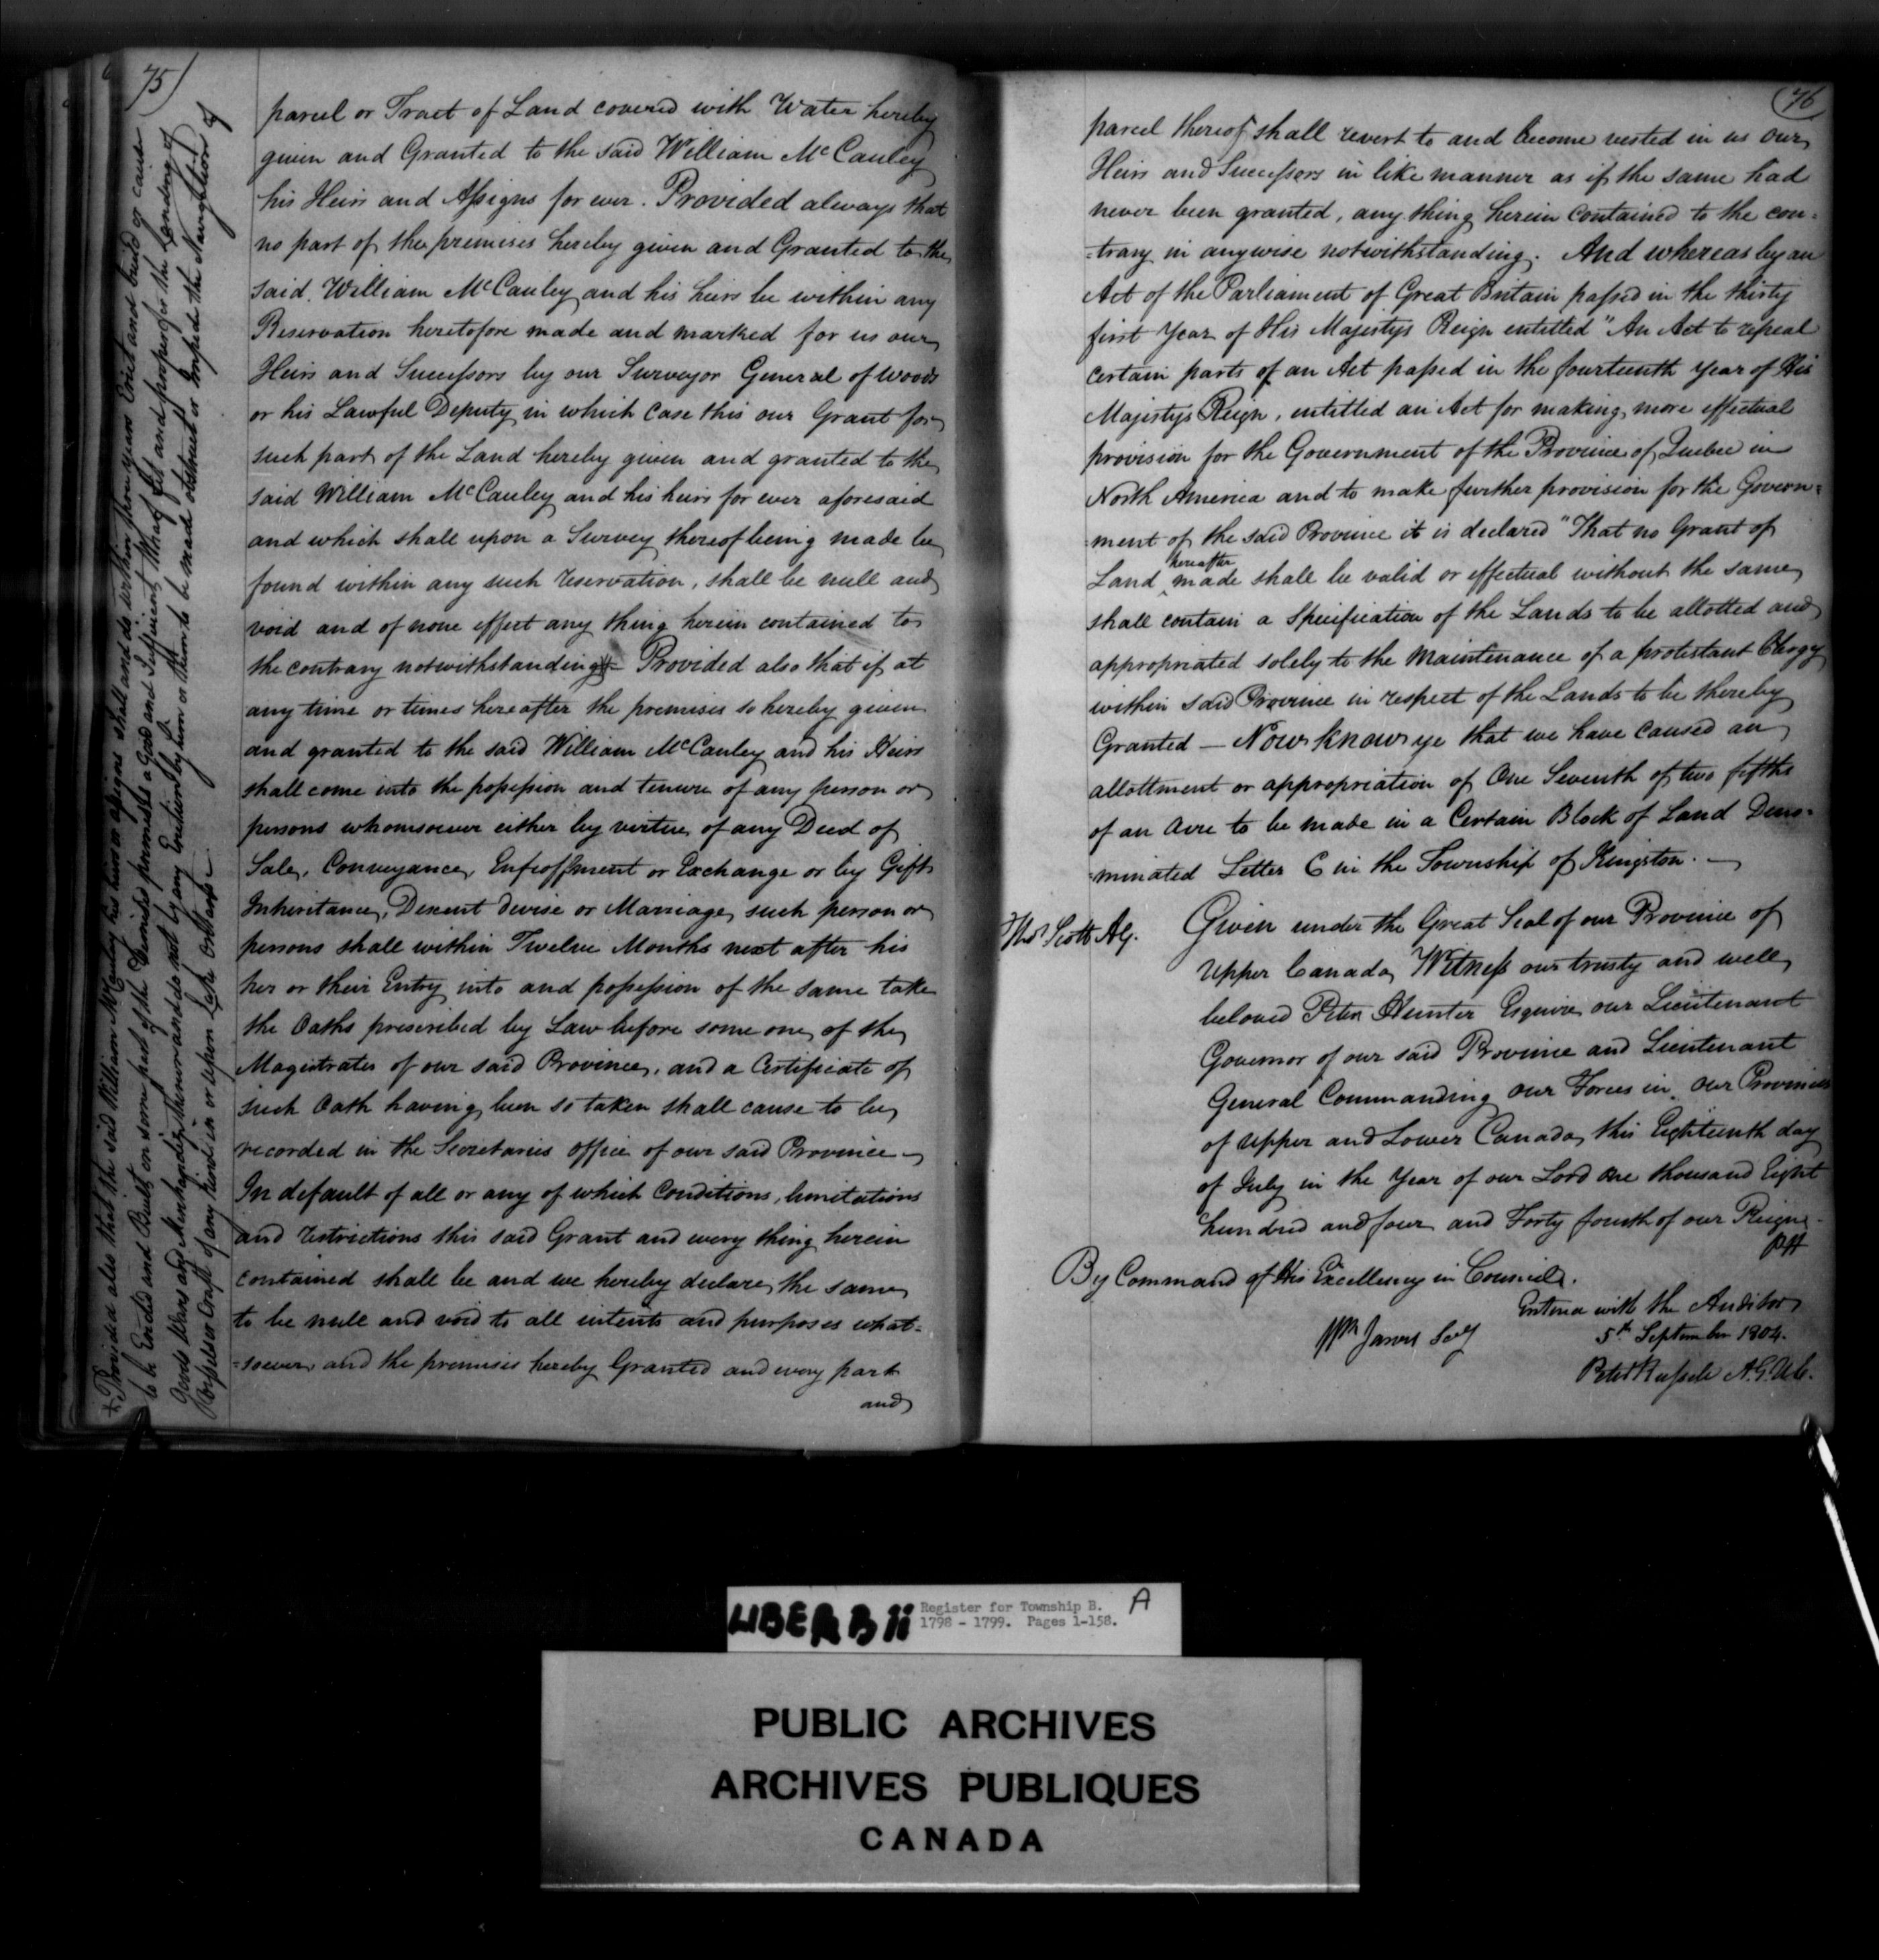 75
parcel or Tract of Land covered with Water hereby
given and Granted to the said William McCauley
his Heirs and Assigns for ever. Provided always that
no part of the premises hereby given and Granted to the
said William McCauley and his heirs be within any
Reservation heretofore made and marked for us our
Heirs and Successors by our Surveyor General of Woods
or his Lawful Deputy in which Case this our Grant for
such part of the Land hereby given and granted to the
said William McCauley and his heirs for ever aforesaid
and which shall upon a Survey thereof being made be
found within any such reservation, shall be null and
void and of none effect any thing herein contained to
the contrary notwithstanding Provided also that if at
any time or times hereafter the premises so hereby given
and granted to the said William McCauley and his Heirs
shall come into the possession and tenure of any person or
persons whomsoever either by virtue of any Deed of
Sale, Conveyance, Enfeoffment or Exchange or by Gift
Inheritance, Descent devise or Marriage, such person or
persons shall within Twelve Months next after his
her or their Entry into and possession of the same take
the Oaths prescribed by Law before some one of the
Magistrates of our said Province, and a Certificate of
such Oath having been so taken shall cause to be
recorded in the Secretaries office of our said Province -
In default of all or any of which Conditions, limitations
and restrictions this said Grant and every thing herein
contained shall be and we hereby declare the same
to be null and void to all intents and purposes what=
=soever and the premises hereby Granted and every part
and
+ Provided also that the said William McCauley his heirs or assigns shall and do within three years Erect and build or cause
to be Erected and Built on some part of the Demised premises a Good and Sufficient Wharf fit and proper for the Landing of
Goods Wares and Merchandize thereon and do not by any Erection by him or them to be made obstruct or impede the Navigation of
Vessels or Craft of any kind in or upon Lake Ontario -
76
parcel thereof shall revert to and become vested in us our
Heirs and Successors in like manner as if the same had
never been granted, any thing herein contained to the con=
=trary in anywise notwithstanding. And whereas by an
Act of the Parliament of Great Britain passed in the thirty
first Year of His Majestys Reign entitled "An Act to repeal
certain parts of an Act passed in the fourteenth year of His
Majestys Reign, entitled an Act for making more effectual
provision for the Government of the Province of Quebec in
North America and to make further provision for the Govern=
=ment of the said Province it is declared "That no Grant of
hereafter
Land ^ made shall be valid or effectual without the same
shall contain a Specification of the Lands to be allotted and
appropriated solely to the Maintenance of a protestant Clergy
within said Province in respect of the Lands to be thereby
Granted — Now know ye that we have caused an
allottment or appropriation of One Seventh of two fifths
of an Acre to be made in a Certain Block of Land Deno=
=minated Letter C in the Township of Kingston. —
Thos Scott AG.
Given under the Great Seal of our Province of
Upper Canada, Witness our trusty and well
beloved Peter Hunter Esquire our Lieutenant
Governor of our said Province and Lieutenant
General Commanding our Forces in our Provinces
of Upper and Lower Canada, this Eighteenth day
of July in the Year of our Lord one thousand Eight
hundred and four and Forty fourth of our Reign -
PH
By Command of His Excellency in Council.
Wm Jarvis Secy
Entered with the Auditor
5th September 1804.
Peter Russell A.G.U.C.
LIBER B ii
Register for Township B.
1798 - 1799. Pages 1-158.
A
PUBLIC ARCHIVES
ARCHIVES PUBLIQUES
CANADA